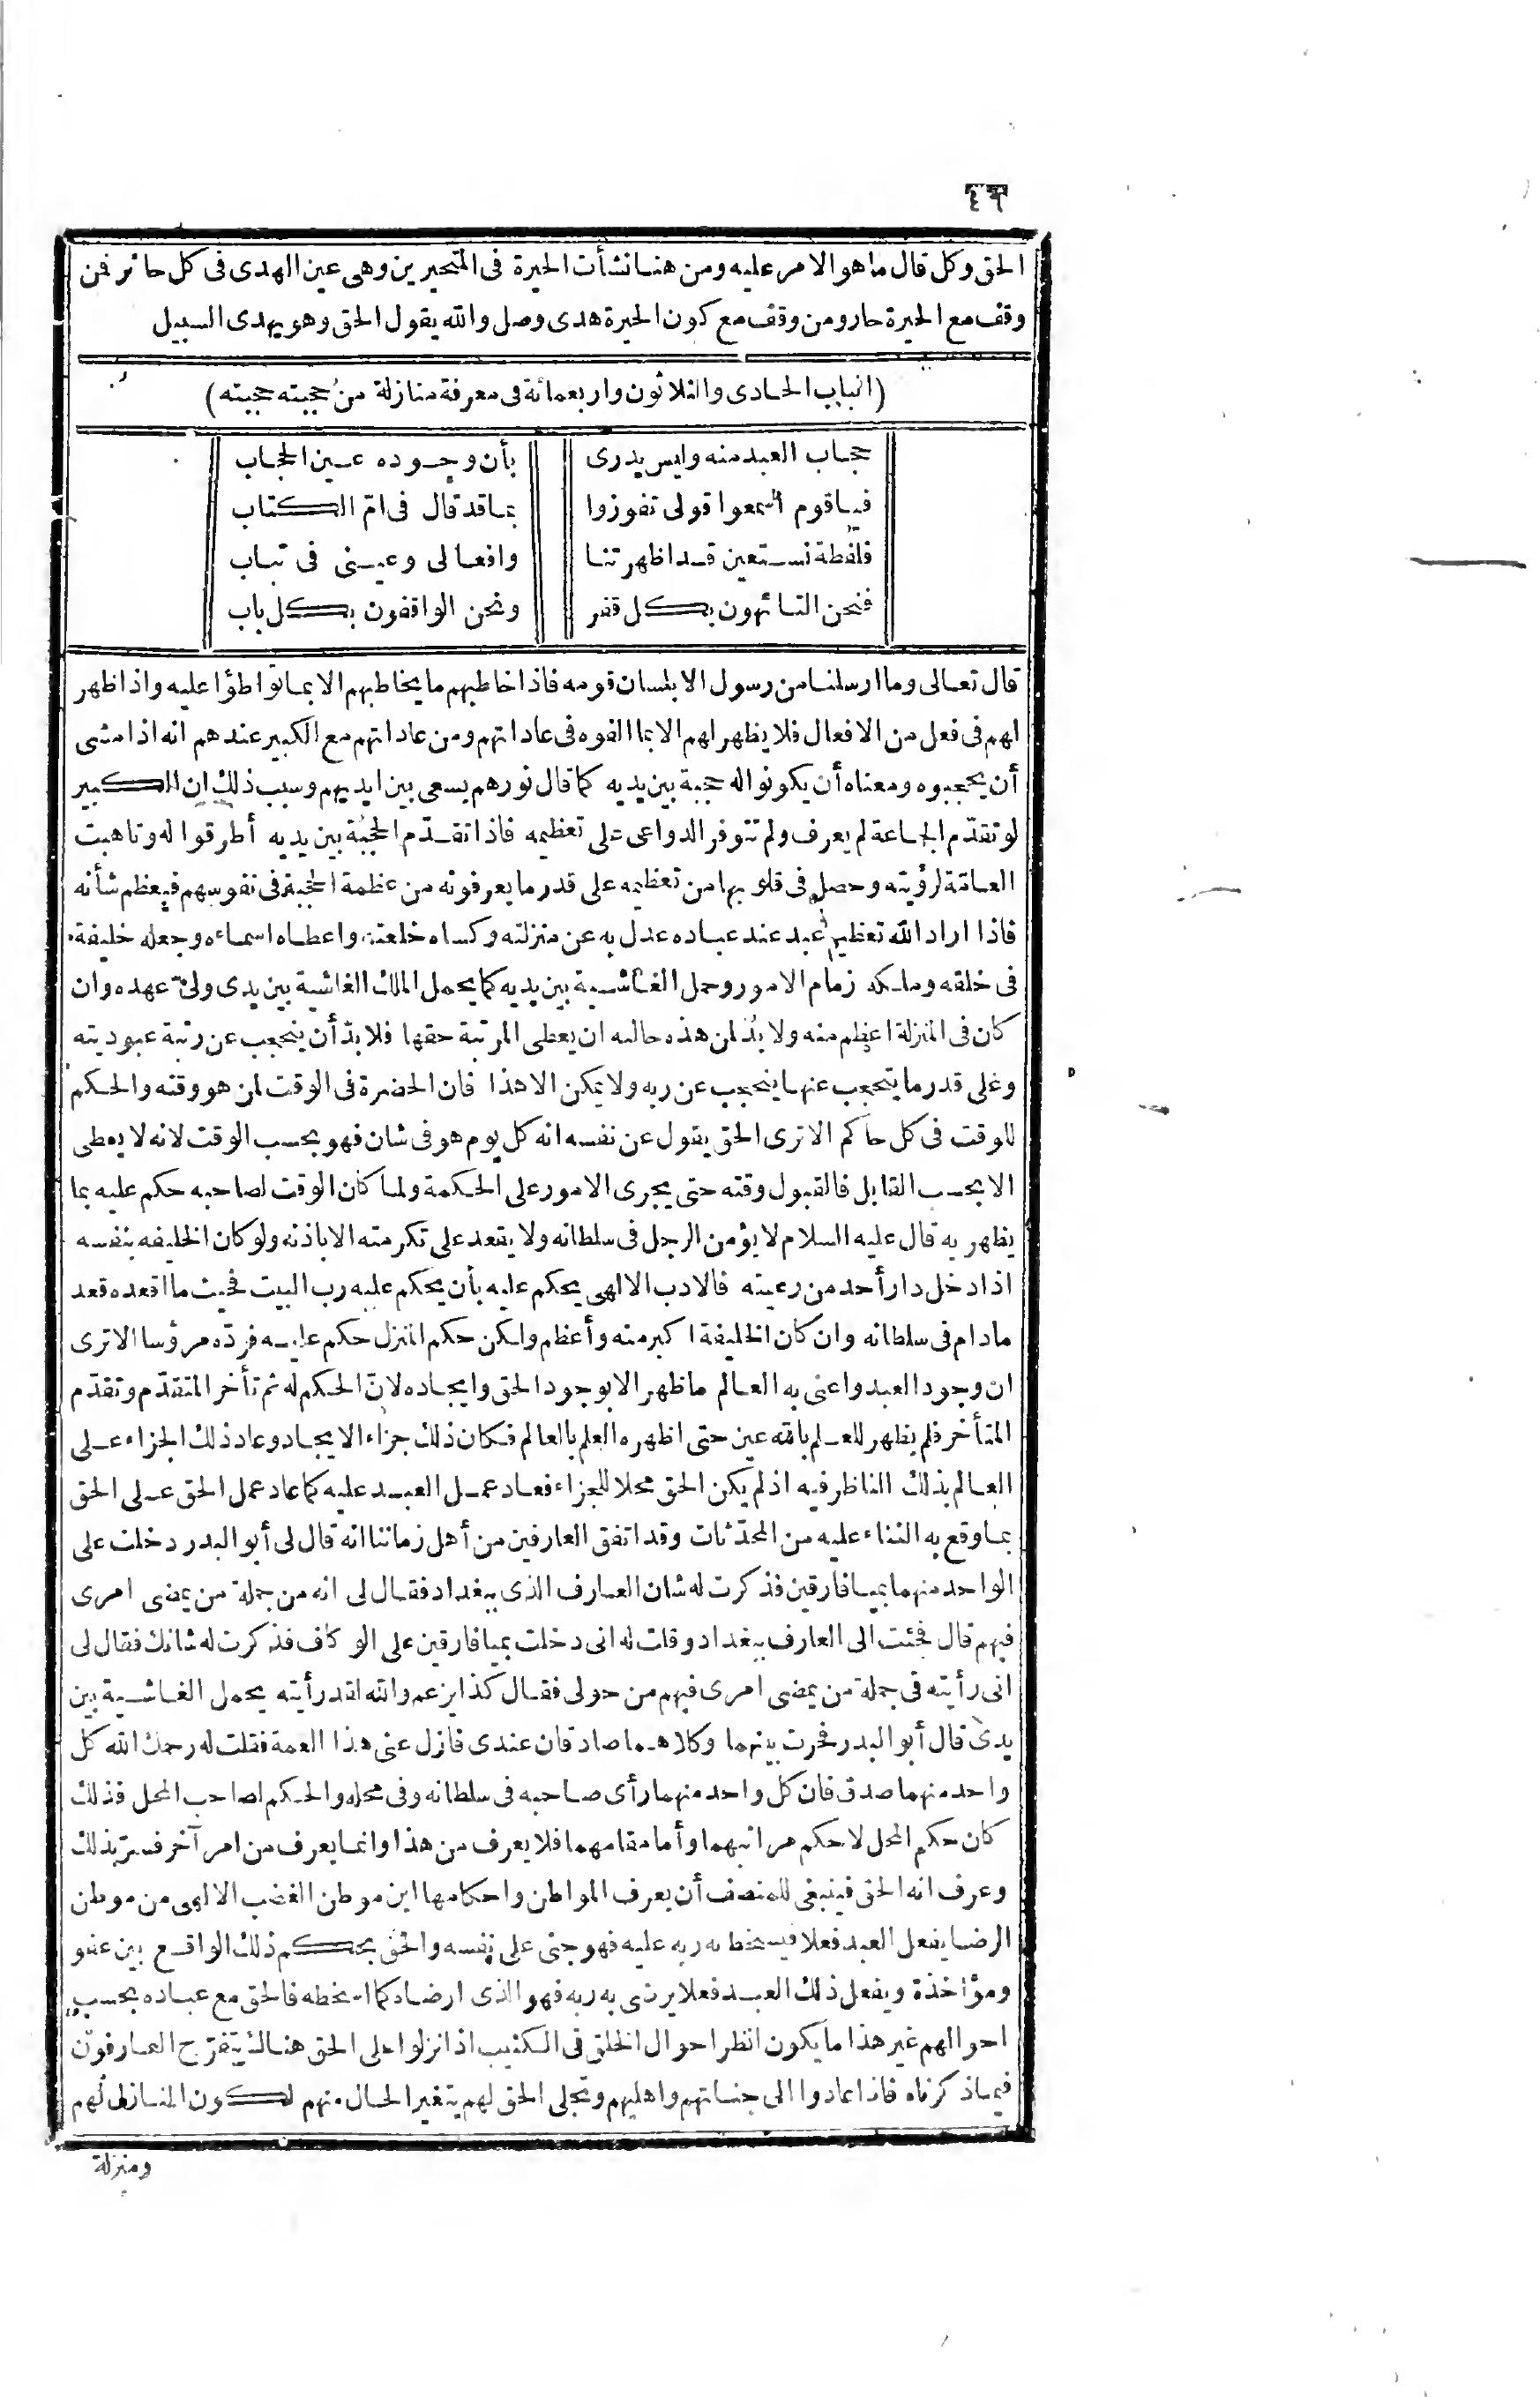 ٤٦
الحق وكل قال ما هو الامر عليه ومن هنا نشأت الحيرة فى المتحيرين وهى عين الهدى فى كل حائر فمن
وقف مع الحيرة حار ومن وقف مع كون الحيرة هدى وصل والله يقول الحق وهو يهدى السبيل
(الباب الحادى والثلاثون واربعمائة فى معرفة منازلة من حجبته حجبته)
حجاب العبد منه وليس يدرى بأن وجوده عين الحجاب
فيا قوم اسمعوا قولى تفوزوا بما قد قال فى امّ الكتاب
فلفظة نستعين قد اظهرتنا وافعالى وعينى فى تباب
فنحن التائهون بكل قفر ونحن الواقفون بكل باب
قال تعالى وما ارسلنا من رسول الا بلسان قومه فاذا خاطبهم ما يخاطبهم الا بما تواطؤا عليه واذا ظهر
لهم فى فعل من الافعال فلا يظهر لهم الا بما الفوه فى عاداتهم ومن عاداتهم مع الكبير عندهم انه اذا مشى
أن يحجبوه ومعناه أن يكونوا له حجبة بين يديه كما قال نورهم يسعى بين ايديهم وسبب ذلك ان الكبير
لو تقدّم الجماعة لم يعرف ولم تتوفر الدواعى على تعظيمه فاذا تقدّم الحجبة بين يديه أطرقوا له وتاهبت
العامّة لرؤيته وحصل فى قلوبها من تعظيمه على قدر ما يعرفونه من عظمة الحجبة فى نفوسهم فيعظم شأنه
فاذا اراد الله تعظيم عبد عند عباده عدل به عن منزلته وكساه خلعته واعطاه اسماءه وجعله خليفة
فى خلقه وملكه زمام الامور وحمل الغاشية بين يديه كما يحمل الملك الغاشية بين يدى ولىّ عهده وان
كان فى المنزلة اعظم منه ولا بدّ لمن هذه حاله ان يعطى المرتبة حقها فلا بدّ أن ينحجب عن رتبة عبوديته
وعلى قدر ما ينحجب عنها ينحجب عن ربه ولا يمكن الا هذا فان الحضرة فى الوقت لمن هو وقته والحكم
للوقت فى كل حاكم الا ترى الحق يقول عن نفسه انه كل يوم هو فى شان فهو بحسب الوقت لانه لا يعطى
الا بحسب القابل فالقبول وقته حتى يجرى الامور على الحكمة ولما كان الوقت لصاحبه حكم عليه بما
يظهر به قال عليه السلام لا يؤمن الرجل فى سلطانه ولا يقعد على تكرمته الا باذنه ولو كان الخليفه بنفسه
اذا دخل دار أحد من رعيته فالادب الالهى يحكم عليه بأن يحكم عليه رب البيت فحيث ما اقعده قعد
مادام فى سلطانه وان كان الخليفة اكبر منه وأعظم ولكن حكم المنزل حكم عليه فردّه مرؤسا الا ترى
ان وجود العبد واعنى به العالم ما ظهر الا بوجود الحق وايجاده لانّ الحكم له ثم تأخر المتقدّم وتقدّم
المتأخر فلم يظهر للعلم بالله عين حتى اظهره العلم بالعالم فكان ذلك جزاء الايجاد وعاد ذلك الجزاء على
العالم بذلك الناظر فيه اذ لم يكن الحق محلا للجزاء فعاد عمل العبد عليه كما عاد عمل الحق على الحق
بما وقع به الثناء عليه من المحدّثات وقد اتفق العارفين من أهل زماننا انه قال لى أبو البدر دخلت على
الواحد منهما بميافارقين فذكرت له شان العارف الذى ببغداد فقال لى انه من جملة من يمضى امرى
فيهم قال فجئت الى العارف ببغداد وقلت له انى دخلت بميافارقين على الوكاف فذكرت له شانك فقال لى
انى رأيته فى جملة من يمضى امرى فيهم من حولى فقال كذا يزعم والله لقد رأيته يحمل الغاشية بين
يدىّ قال أبو البدر فحرت بينهما وكلاهما صادقان عندى فازل عنى هذا الغمة فقلت له رحمك الله كل
واحد منهما صدق فان كل واحد منهما رأى صاحبه فى سلطانه وفى محله والحكم لصاحب المحل فذلك
كان حكم المحل لا حكم مراتبهما وأما مقامهما فلا يعرف من هذا وانما يعرف من امر آخر فسرّ بذلك
وعرف انه الحق فينبغى للمنصف أن يعرف المواطن واحكامها اين موطن الغضب الالهى من موطن
الرضا يفعل العبد فعلا فيسخط به ربه عليه فهو جنى على نفسه والحق يحكم ذلك الواقع بين عفو
ومؤاخذة ويفعل ذلك العبد فعلا يرضى به ربه فهو الذى ارضاه كما اسخطه فالحق مع عباده بحسب
احوالهم غير هذا ما يكون انظر احوال الخلق فى الكثيب اذا نزلوا على الحق هنالك يتفرّج العارفون
فيما ذكرناه فاذا عادوا الى جناتهم واهليهم وتجلى الحق لهم يتغير الحال منهم لكون المنازل لهم
ومنزلة